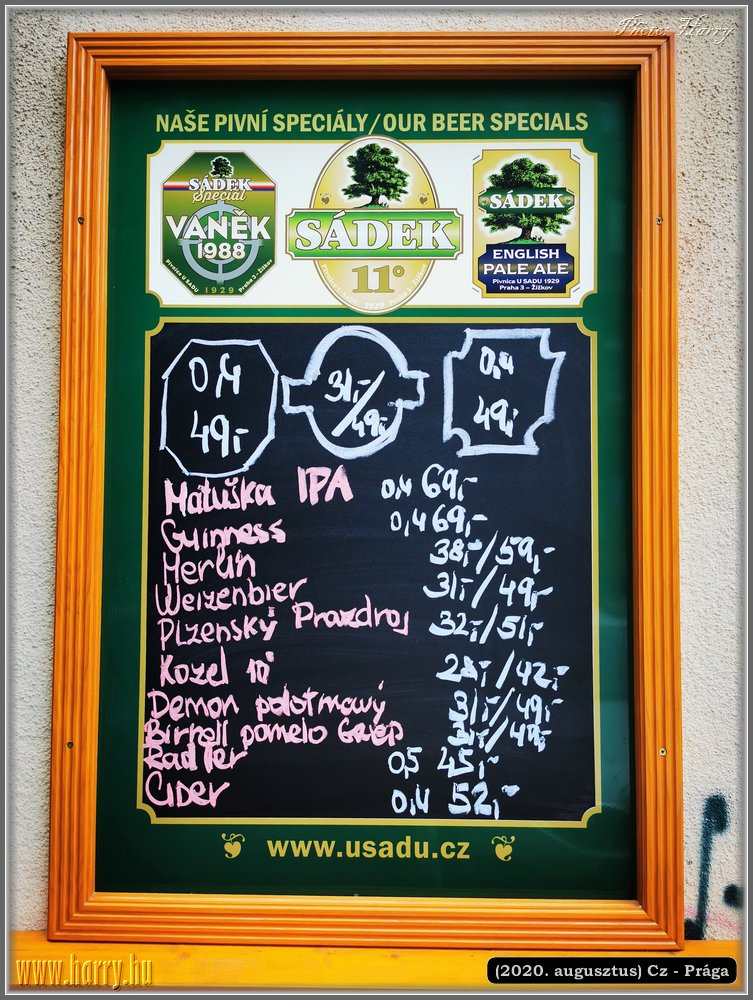 Photo: Harry
NAŠE PIVNÍ SPECIÁLY/OUR BEER SPECIALS
SÁDEK
Special
VANĚK
1988
Pivnice U SADU 1929 Praha 3 - Žižkov
SÁDEK
11°
Pivnice U SADU 1929 Praha 3 - Žižkov
SÁDEK
ENGLISH
PALE ALE
Pivnice U SADU 1929
Praha 3 - Žižkov
0,4
49,-
31,-/49,-
0,4
49,-
Matuška IPA 0,4 69,-
Guinness 0,4 69,-
Merlin 38,-/59,-
Weizenbier 31,-/49,-
Plzenský Prazdroj 32,-/51,-
Kozel 10° 28,-/42,-
Demon polotmavý 31,-/49,-
Birrell pomelo Grep 31,-/49,-
Radler 0,5 45,-
Cider 0,4 52,-
www.usadu.cz
www.harry.hu
(2020. augusztus) Cz - Prága